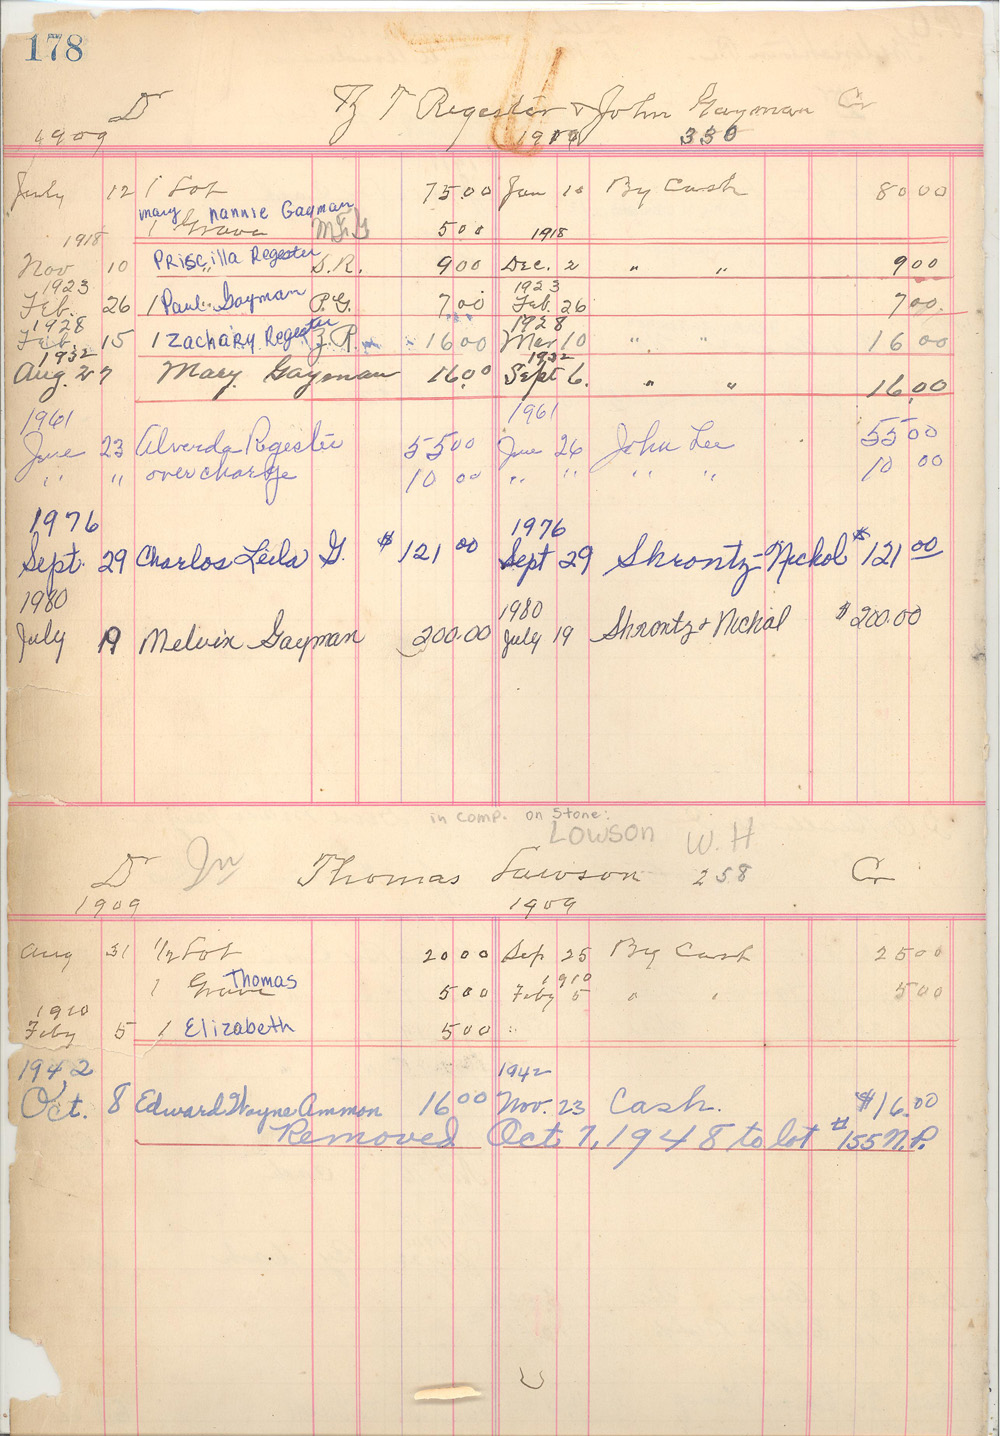 178
Dr Z T Regester & John Gayman Cr
1909 1909 330
July 12 1 Lot 75 00 Jan 10 By Cash 80 00
mary nannie Gayman
1 Grave M.G. 5 00
1918 1918
Nov 10 Priscilla Regester S.R. 9 00 Dec. 2 " " 9 00
1923 1923
Feb. 26 1 Paul Gayman P.G. 7 00 Feb. 26 7 00
1928 1928
Feb. 15 1 Zachary Regester Z.R. 16 00 Mar 10 " " 16 00
1932 1932
Aug. 27 Mary Gayman 16.00 Sept 6. " " 16.00
1961 1961
June 23 Alverda Regester 55 00 June 26 John Lee 55 00
" " overcharge 10 00 " " " " 10 00
1976 1976
Sept. 29 Charlos Leila G. $ 121 00 Sept 29 Shrontz-Nichol $ 121 00
1980 1980
July 19 Melvin Gayman 200.00 July 19 Shrontz & Nichol $ 200.00
in comp. on Stone:
Lowson W. H
Dr Thomas Lawson 258 Cr
1909 1909
Aug 31 1/2 Lot 20 00 Sep 25 By Cash 25 00
1910
1 Grave Thomas 5 00 Feby 5 " " 5 00
1910
Feby 5 1 Elizabeth 5 00 "
1942 1942
Oct. 8 Edward Wayne Ammon 16 00 Nov. 23 Cash. $16.00
Removed Oct 7, 1948 to lot #155 N.P.